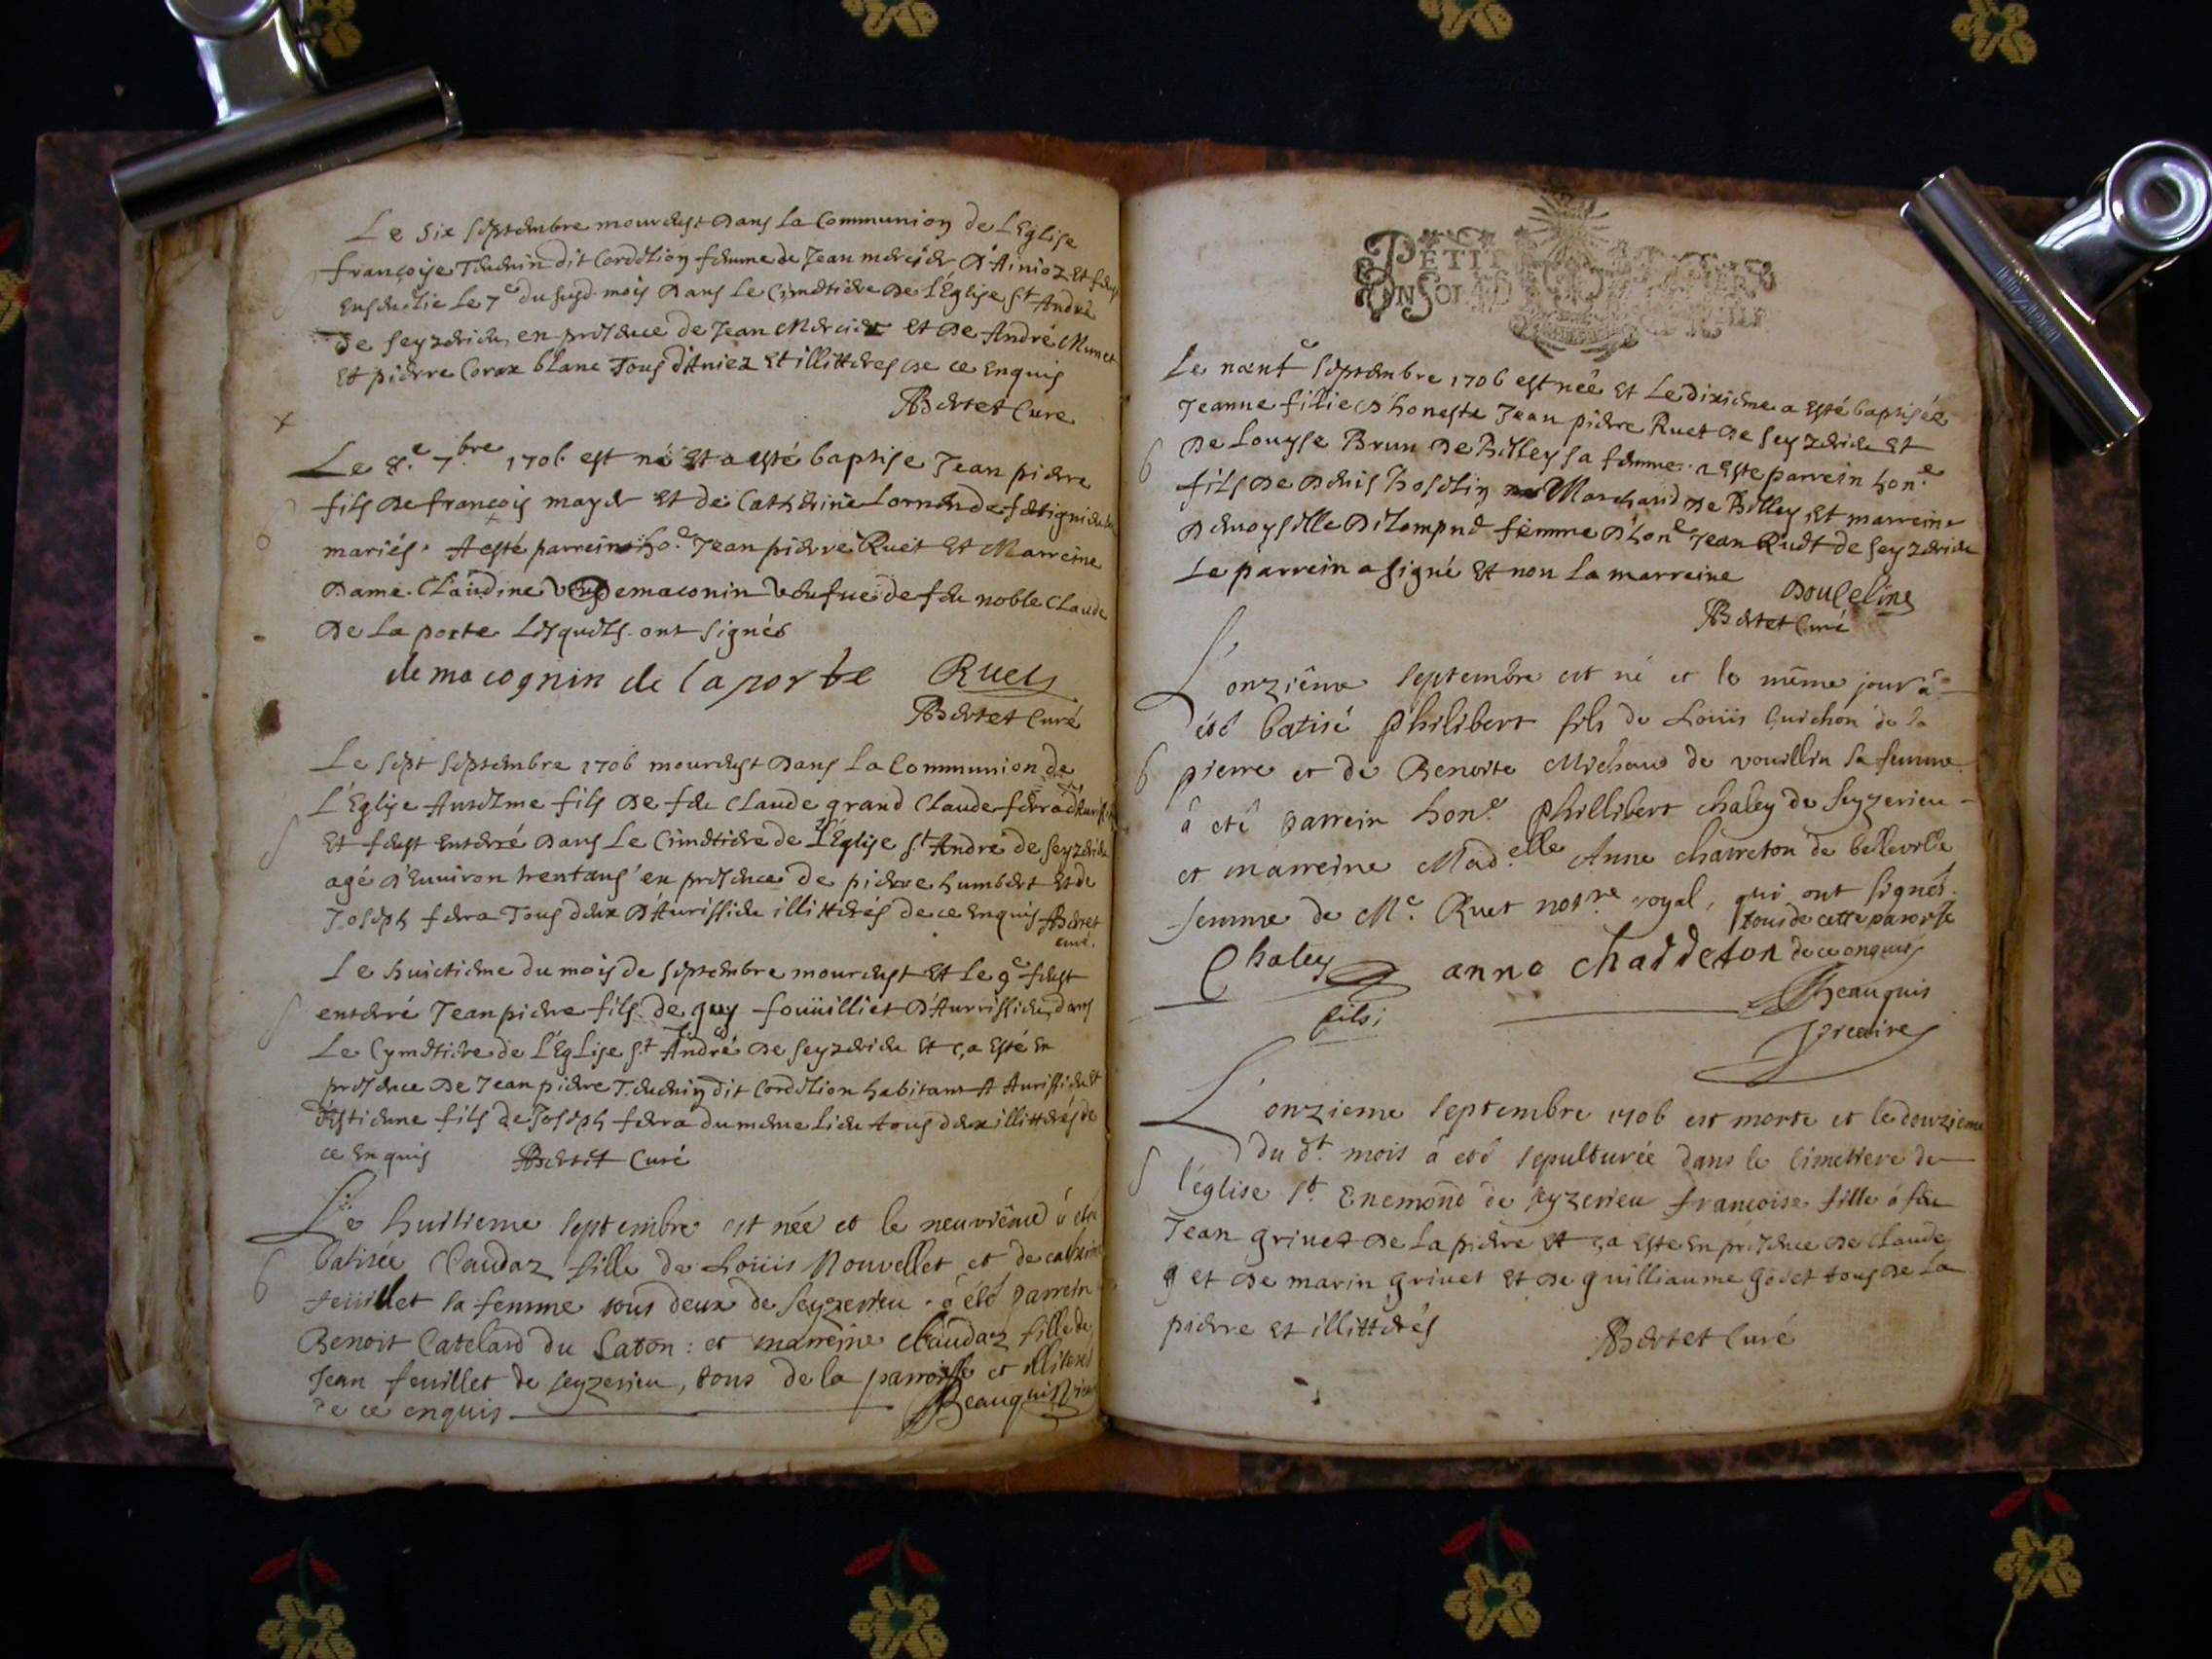 Le six septembre mourust dans la Communion de LEglise
françoise Theuenin dit Cordelion femme de Jean mercier d'Ainioz Et fust
Enseuelie Le 7e du susd. mois dans Le Cimetiere de l'Eglise St André
de seyzerieu, en presence de Jean Mercier et de André Munet
Et pierre Corax blanc Tous d'Aniez Et illitteres de ce Enquis
Bertet Cure
Le 8.e 7.bre 1706 est né Et a esté baptise Jean pierre
fils de françois mayer et de Catherine Lornen de fetignieu
mariés. A esté parrein ho.e Jean pierre Ruet Et Marreine
Dame Claudine demaconin Veufue de feu noble Claude
De La porte Lesquels ont signés
demacognin de laporte Ruet
Bertet Curé
Le sept septembre 1706 mourust Dans La Communion de
L'Eglise Anselme fils de feu Claude grand Claude ferra
Et fust Enterré Dans Le Cimetiere de L'Eglise St André de seyzerieu
agé d'Enuiron trentans en presence de pierre humbert et de
Joseph ferra Tous deux d'Aurissieu illitterés de ce Enquis Bertet
curé.
Le huictieme du mois de septembre mourust Et Le 9e fust
enterré Jean pierre fils de guy foüilliet d'Aurrissieu, dans
Le Cymetiere de L'Eglise St André de seyzerieu Et ça Esté En
presence De Jean pierre Teuenin dit Cordelion habitant A Aurissieu et
d'Estienne fils de Joseph ferra du meme Lieu tous deux illitterés de
ce Enquis Bertet Curé
Le huitieme septembre est née et le neuvième à eté
batisée Claudaz fille de Loüis Nouvellet et de catherine
feüillet sa femme tous deux de Seyzerieu. à été parrein
Benoit Catelard du Laton: et marreine claudaz fille de
Jean feuillet de seyzerieu, tous de la parroisse et illiterés
de ce enquis Beauquis Vicaire
PETIT
Le neufe septembre 1706 est neé et Le dixieme a esté baptisée
Jeanne fille d'honeste Jean pierre Ruet de seyzerieu Et
De Louyse Brun De Billey sa femme. a Este parrein hon.e
fils de Denis Marchand de Billey, Et marreine
femme d'hone Jean Ruet de seyzerieu
Le parrein a signé Et non La marreine
Douceline
Bertet Curé
L'onzième septembre est né et le même jour à
été batisé Philibert fils de Loüis Guichon de la
pierre et de Benoite Michaud de vouillin sa femme
à eté parrein hon.e Phillibert chaley de Seyzerieu
et marreine Mad.elle Anne charreton de belleville
femme de Me. Ruet notre royal, qui ont signés.
tous de cette paroisse
Chaley anne charreton de ce enquis
fils Beauquis
Vicaire
L'onzieme septembre 1706 est morte et le douzieme
du dt. mois à eté sepulturée dans le cimetiere de
l'église St. Enemond de seyzerieu françoise fille à feu
Jean grinet de La pierre Et ça Este En presence de Claude
et de marin grinet Et de guilliaume godet tous de La
pierre Et illitterés Bertet Curé